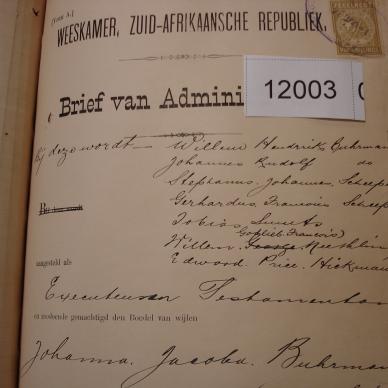 [Form A.]
WEESKAMER, ZUID-AFRIKAANSCHE REPUBLIEK.
Brief van Admini
12003
Bij deze wordt Willem Hendrik Buhrman
Johannes Rudolf do
Stephanus Johannes Scheep
Gerhardus Francois Scheep
Tobias Smuts
Gottlieb Francois
Willem
Edward Price Hickman
aangesteld als
Executeuren Testamentair
en zoodoende gemachtigd den Boedel van wijlen
Johanna Jacoba Buhrman